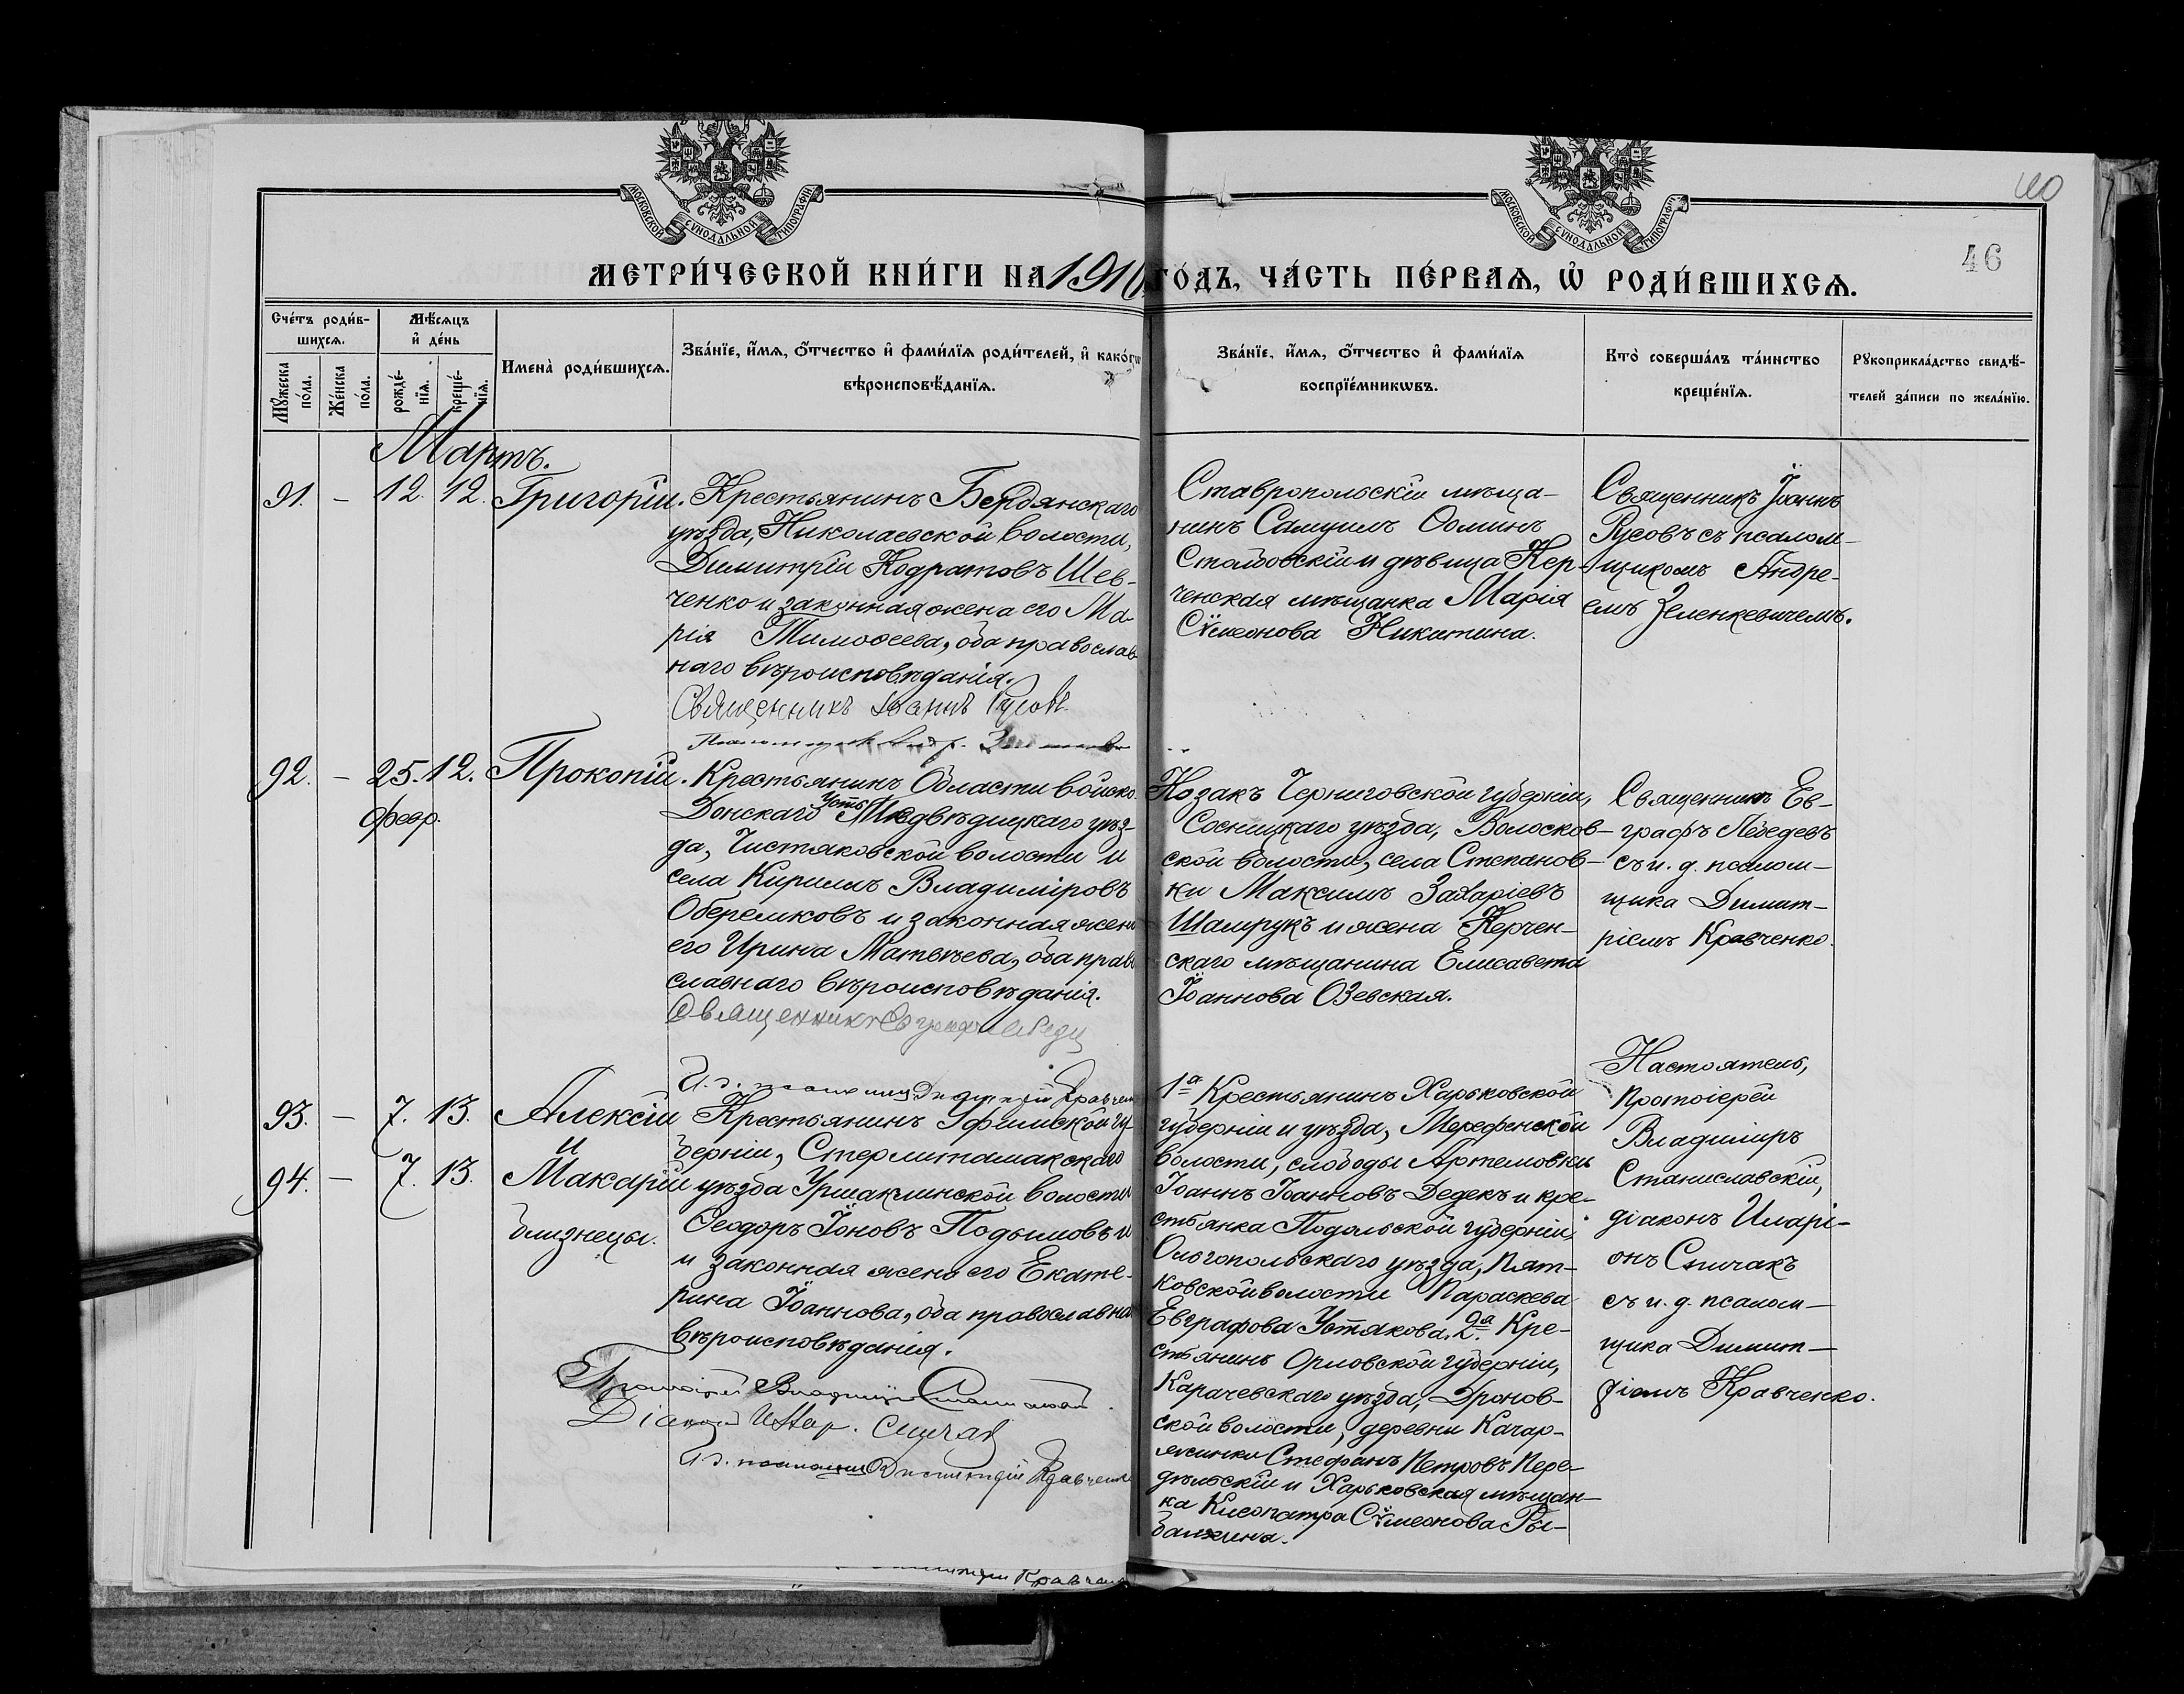 МОСКОВСКОЙ СѴНОДАЛЬНОЙ ТИПОГРАФІИ
МОСКОВСКОЙ СѴНОДАЛЬНОЙ ТИПОГРАФІИ
40
46
МЕТРИ́ЧЕСКОЙ КНИ́ГИ НА 1910 ГО́ДЪ, ЧА́СТЬ ПЕ́РВАѦ, Ѡ҆ РОДИ́ВШИХСѦ.
Сче́тъ роди́в-
шихсѧ.
Мѣ́сѧцъ
и҆ де́нь
Мꙋ́жеска
по́ла.
Же́нска
по́ла.
рожде́-
нїѧ.
креще́-
нїѧ.
Имена̀ роди́вшихсѧ.
Зва́нїе, и҆́мѧ, ѻ҆́тчество и҆ фами́лїѧ роди́телей, и҆ како́гѡ
вѣроисповѣ́данїѧ.
Зва́нїе, и҆́мѧ, ѻ҆́тчество и҆ фами́лїѧ
воспрїе́мникѡвъ.
Кто̀ соверша́лъ та́инство
креще́нїѧ.
Рꙋкоприкла́дство свидѣ́-
телей за́писи по жела́нїю.
Мартъ.
91. – 12. 12. Григорій.
Крестьянинъ Бердянскаго
уѣзда, Николаевской волости,
Димитрій Кодратовъ Шев-
ченко и законная жена его Ма-
рія Тимоѳеева, оба православ
наго вѣроисповѣданія.
Священникъ Іоаннъ Русовъ
Ставропольскій мѣща-
нинъ Самуилъ Ѳоминъ
и дѣвица Кер-
ченская мѣщанка Марія
Сѵмеонова Никитина.
Священникъ Іоаннъ
Русовъ съ псалом-
щикомъ Андре-
емъ Зеленкевичемъ.
92. – 25. 12. Прокопій.
февр.
Крестьянинъ Области войска
Донскаго Усть Медвѣдицкаго уѣз-
да, Чистяковской волости и
села Кириллъ Владиміровъ
Оберемковъ и законная жена
его Ирина Матвѣева, оба право
славнаго вѣроисповѣданія.
Священникъ Евграфъ Лебеде
И. д. псаломщ Димитрій Кравчен
Козакъ Черниговской губерніи,
Сосницкаго уѣзда, Волосков-
ской волости, села Степанов-
ки Максимъ Захаріевъ
Шамрукъ и жена Керчен-
скаго мѣщанина Елисавета
Іоаннова Озевская.
Священникъ Ев-
графъ Лебедевъ
съ и. д. псалом-
щика Димит-
ріемъ Кравченко.
93. – 7. 13. Алексій
и
94. – 7. 13. Макарій
близнецы.
Крестьянинъ Уфимской гу-
берніи, Стерлитамакскаго
уѣзда Уршаклинской волости
Ѳеодоръ Іоновъ Подымовъ и
и законная жена его Екате-
рина Іоаннова, оба православна
вѣроисповѣданія.
Протоіерей Владиміръ
Діаконъ Илар. Спичак
И. д. псаломщ Димитрій Кравченко
1а Крестьянинъ Харьковской
губерніи и уѣзда, Мерефенской
волости, слободы Артемовки
Іоаннъ Іоанновъ Дедекъ и кре-
стьянка Подольской губерніи,
Ольгопольскаго уѣзда, Пят-
ковской волости Параскева
Евграфова Устякова. 2а Кре-
стьянинъ Орловской губерніи,
Карачевскаго уѣзда, Дронов-
ской волости, деревни Качар-
жинки Стефанъ Петровъ Пере-
дѣльскій и Харьковская мѣщан-
ка Клеопатра Сѵмеонова Ры-
балкина.
Настоятель,
Протоіерей
Владиміръ
Станиславскій,
діаконъ Иларі-
онъ Спичакъ
съ и. д. псалом-
щика Димит-
ріемъ Кравченко.
Кравчен